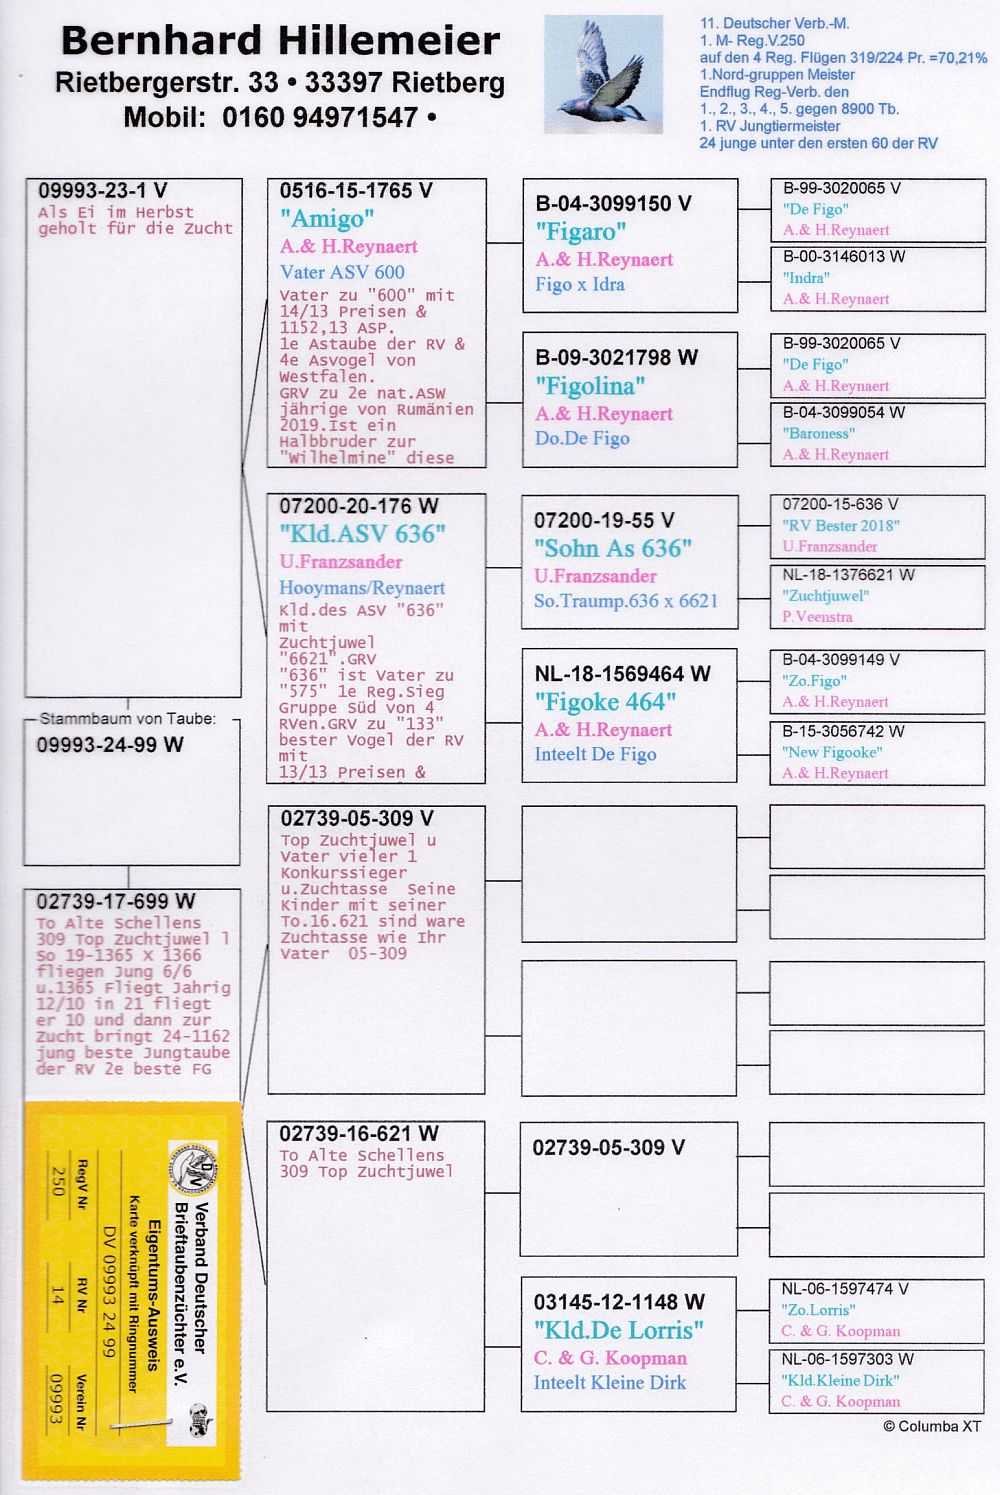 Bernhard Hillemeier
Rietbergerstr. 33 • 33397 Rietberg
Mobil: 0160 94971547 •
11. Deutscher Verb.-M.
1. M- Reg.V.250
auf den 4 Reg. Flügen 319/224 Pr. =70,21%
1.Nord-gruppen Meister
Endflug Reg-Verb. den
1., 2., 3., 4., 5. gegen 8900 Tb.
1. RV Jungtiermeister
24 junge unter den ersten 60 der RV
09993-23-1 V
Als Ei im Herbst
geholt für die Zucht
Stammbaum von Taube:
09993-24-99 W
02739-17-699 W
To Alte Schellens
309 Top Zuchtjuwel l
So 19-1365 x 1366
fliegen Jung 6/6
u.1365 Fliegt Jahrig
12/10 in 21 fliegt
er 10 und dann zur
Zucht bringt 24-1162
jung beste Jungtaube
der RV 2e beste FG
0516-15-1765 V
"Amigo"
A.& H.Reynaert
Vater ASV 600
Vater zu "600" mit
14/13 Preisen &
1152,13 ASP.
1e Astaube der RV &
4e Asvogel von
Westfalen.
GRV zu 2e nat.ASW
jährige von Rumänien
2019.Ist ein
Halbbruder zur
"Wilhelmine" diese
07200-20-176 W
"Kld.ASV 636"
U.Franzsander
Hooymans/Reynaert
Kld.des ASV "636"
mit
Zuchtjuwel
"6621".GRV
"636" ist Vater zu
"575" 1e Reg.Sieg
Gruppe Süd von 4
RVen.GRV zu "133"
bester Vogel der RV
mit
13/13 Preisen &
02739-05-309 V
Top Zuchtjuwel u
Vater vieler 1
Konkurssieger
u.Zuchtasse  Seine
Kinder mit seiner
To.16.621 sind ware
Zuchtasse wie Ihr
Vater  05-309
02739-16-621 W
To Alte Schellens
309 Top Zuchtjuwel
B-04-3099150 V
"Figaro"
A.& H.Reynaert
Figo x Idra
B-09-3021798 W
"Figolina"
A.& H.Reynaert
Do.De Figo
07200-19-55 V
"Sohn As 636"
U.Franzsander
So.Traump.636 x 6621
NL-18-1569464 W
"Figoke 464"
A.& H.Reynaert
Inteelt De Figo
02739-05-309 V
03145-12-1148 W
"Kld.De Lorris"
C. & G. Koopman
Inteelt Kleine Dirk
B-99-3020065 V
"De Figo"
A.& H.Reynaert
B-00-3146013 W
"Indra"
A.& H.Reynaert
B-99-3020065 V
"De Figo"
A.& H.Reynaert
B-04-3099054 W
"Baroness"
A.& H.Reynaert
07200-15-636 V
"RV Bester 2018"
U.Franzsander
NL-18-1376621 W
"Zuchtjuwel"
P.Veenstra
B-04-3099149 V
"Zo.Figo"
A.& H.Reynaert
B-15-3056742 W
"New Figooke"
A.& H.Reynaert
NL-06-1597474 V
"Zo.Lorris"
C. & G. Koopman
NL-06-1597303 W
"Kld.Kleine Dirk"
C. & G. Koopman
© Columba XT
Verband Deutscher
Brieftaubenzüchter e.V.
Eigentums-Ausweis
Karte verknüpft mit Ringnummer
DV 09993 24 99
RegV Nr
250
RV Nr
14
Verein Nr
09993